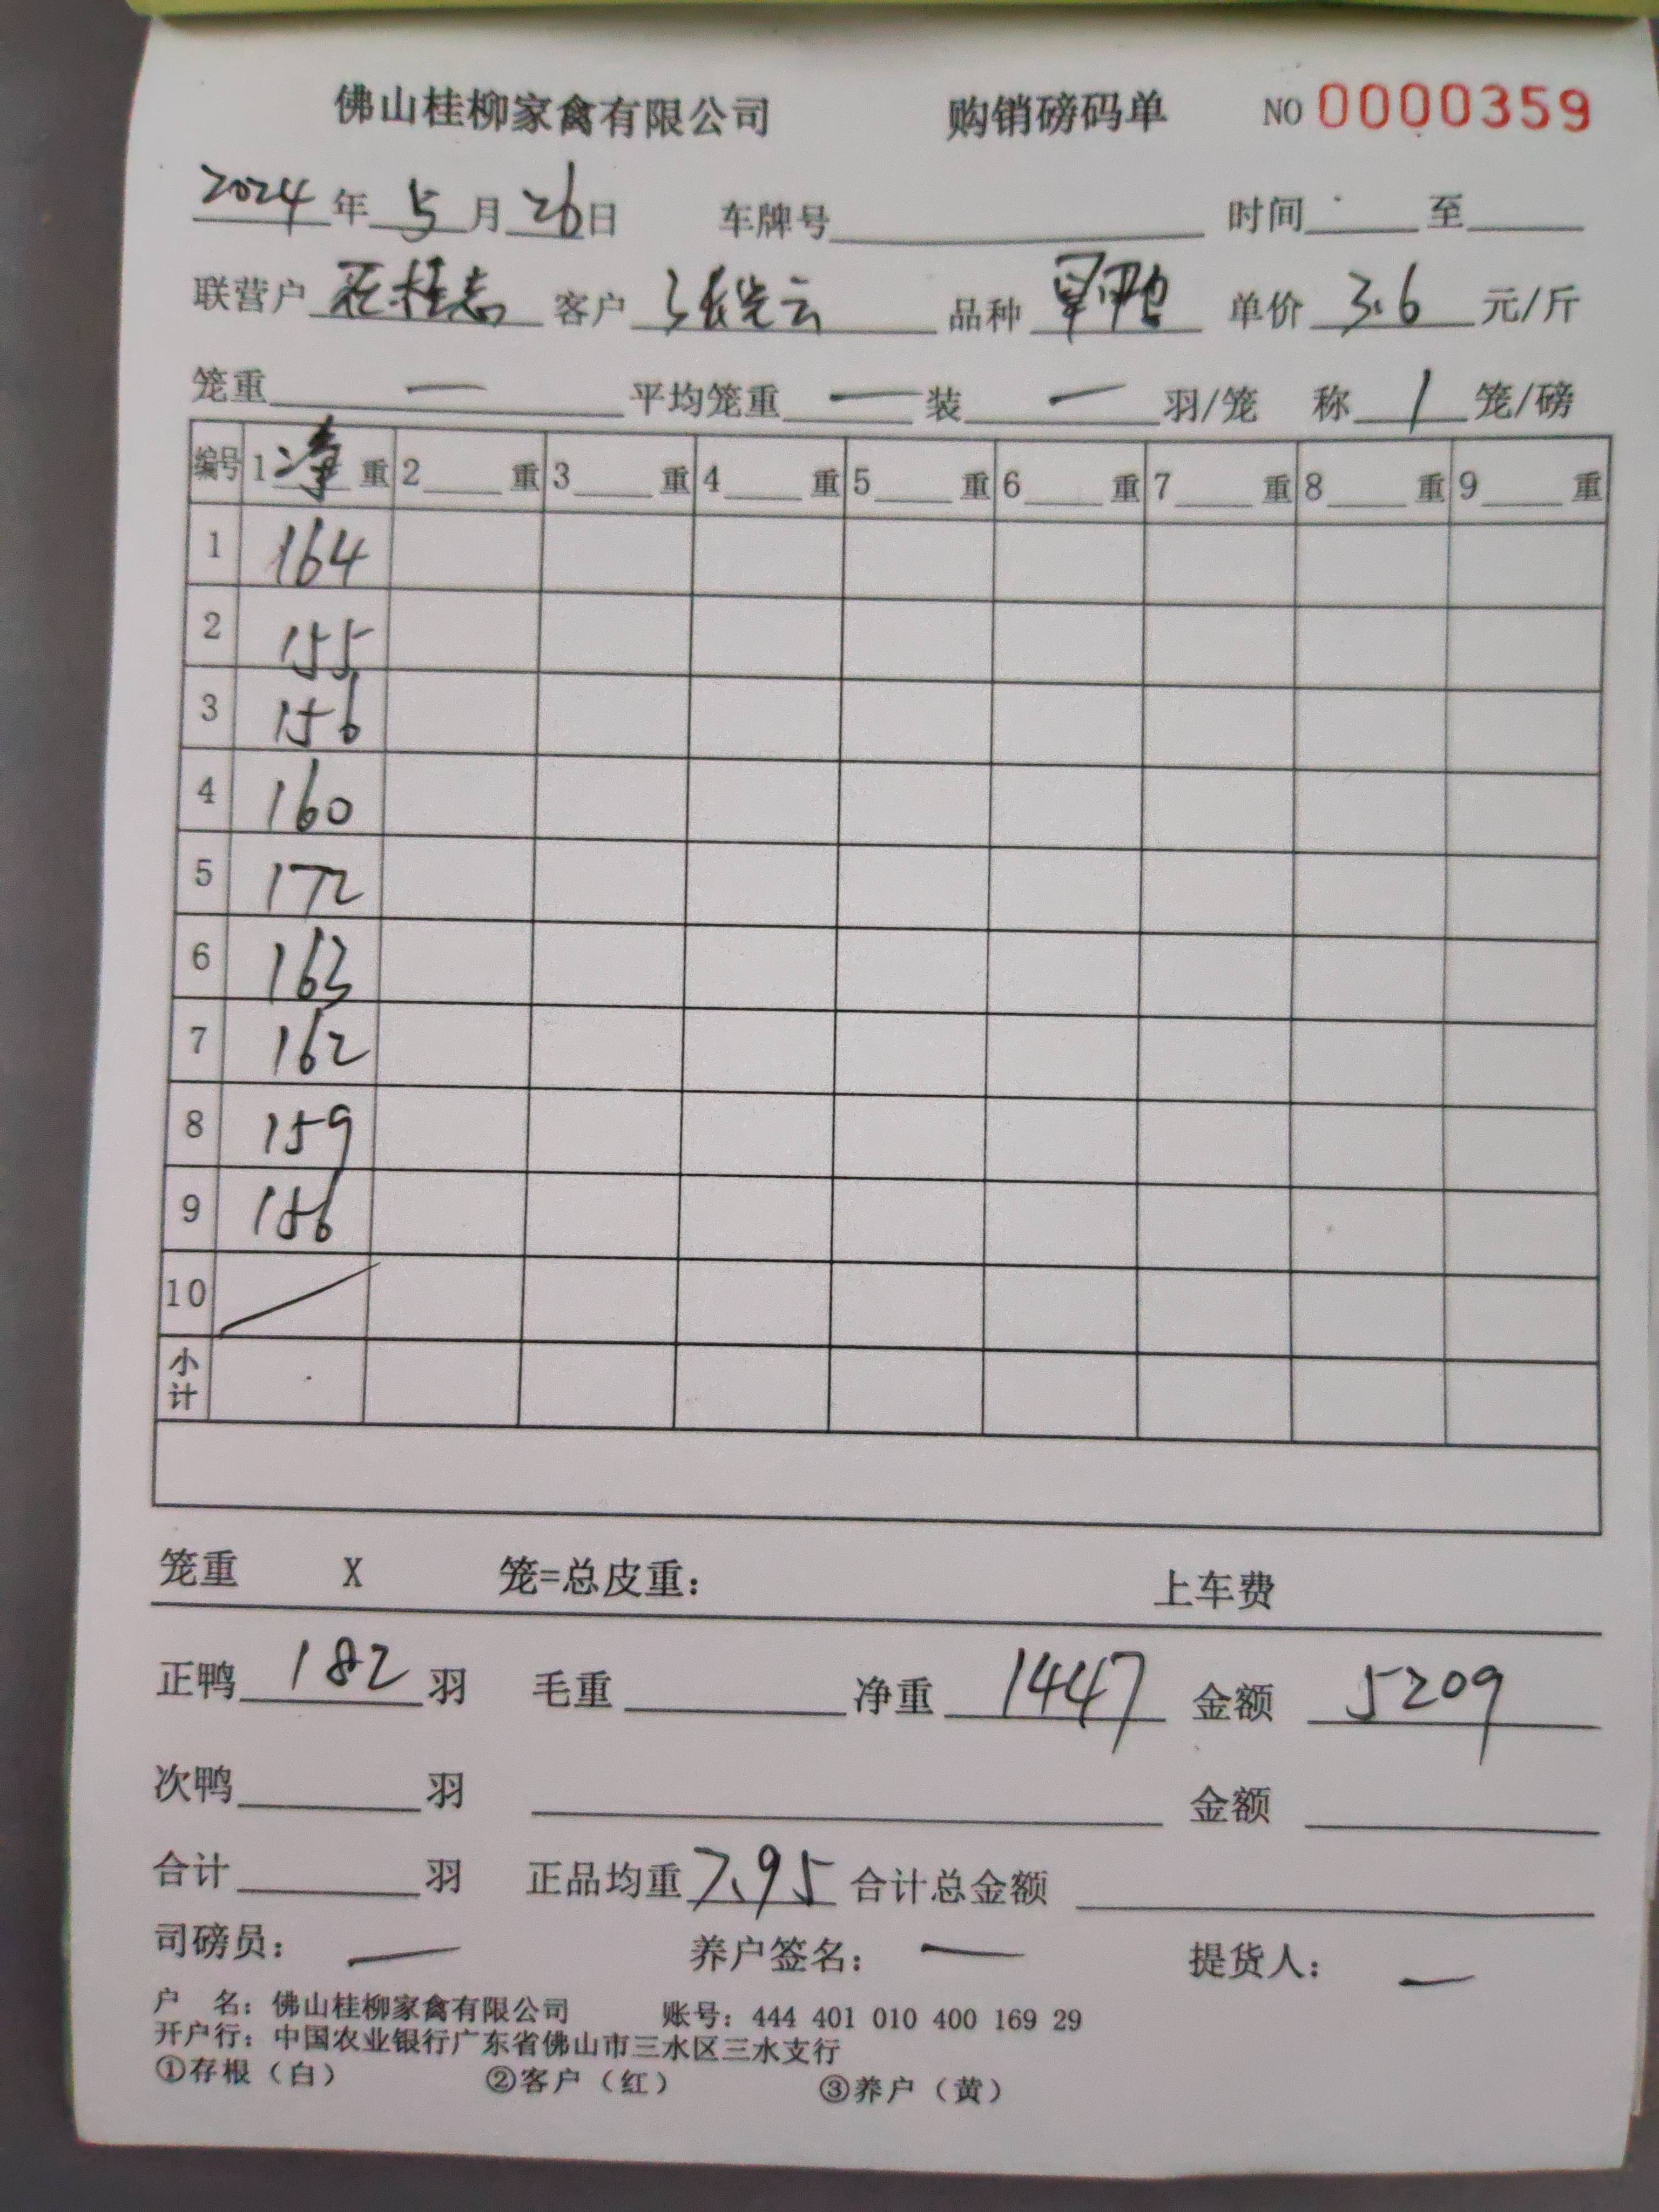 佛山桂柳家禽有限公司 购销磅码单 NO 0000359
2024年5月26日 车牌号 时间 至
联营户 桂志 客户 张先云 品种 旱鸭 单价 3.6 元/斤
笼重 — 平均笼重 — 装 — 羽/笼 称 1 笼/磅
编号 1净重 2 重 3 重 4 重 5 重 6 重 7 重 8 重 9 重
1 164
2 155
3 156
4 160
5 172
6 163
7 162
8 159
9 156
10 /
小计
笼重 X 笼=总皮重： 上车费
正鸭 182 羽 毛重 净重 1447 金额 5209
次鸭 羽 金额
合计 羽 正品均重 7.95 合计总金额
司磅员： — 养户签名： — 提货人： —
户 名：佛山桂柳家禽有限公司 账号：444 401 010 400 169 29
开户行：中国农业银行广东省佛山市三水区三水支行
①存根（白） ②客户（红） ③养户（黄）